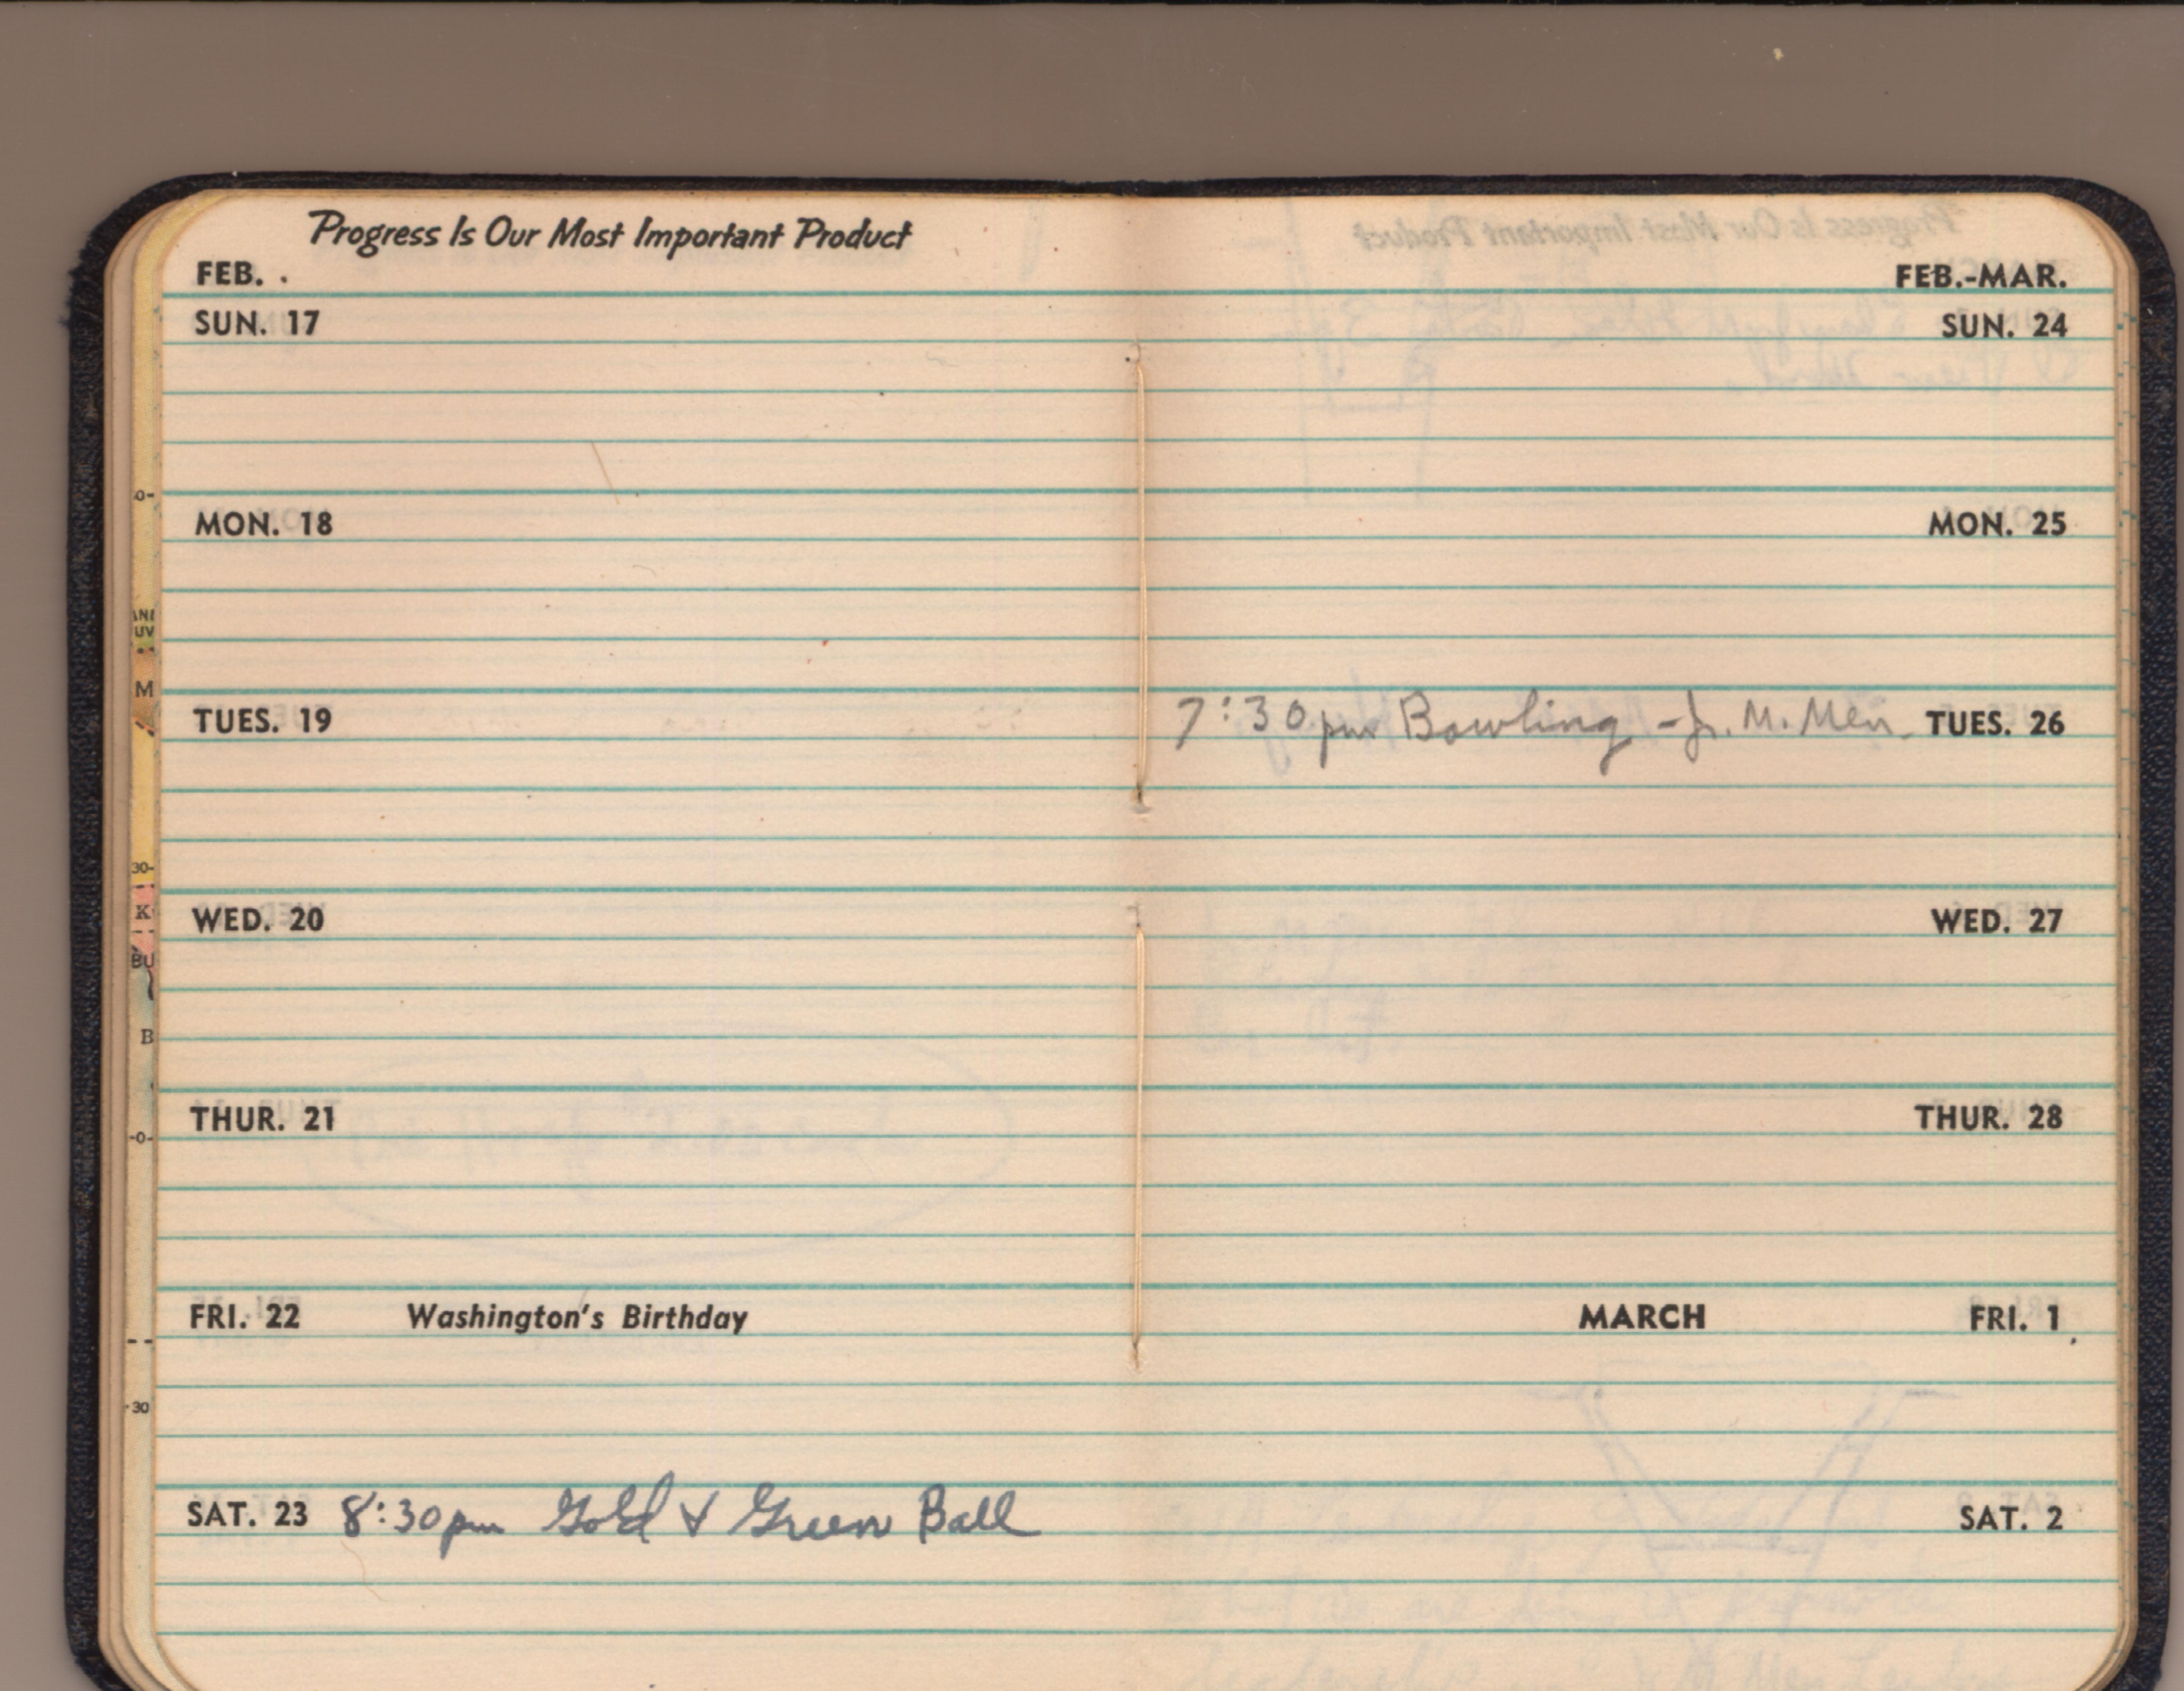 Progress Is Our Most Important Product
FEB.
SUN. 17
MON. 18
TUES. 19
WED. 20
THUR. 21
FRI. 22 Washington's Birthday
SAT. 23 8:30pm Gold & Green Ball
FEB.-MAR.
SUN. 24
MON. 25
7:30pm Bowling - Jr. M. Men. TUES. 26
WED. 27
THUR. 28
MARCH FRI. 1
SAT. 2